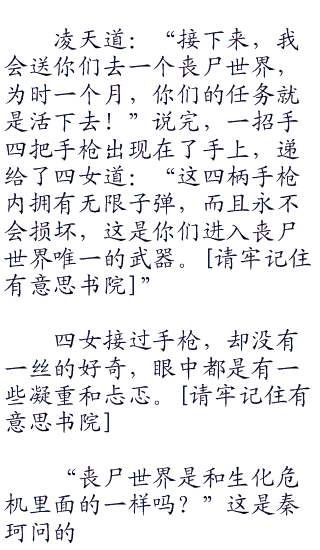 凌天道：“接下来，我
会送你们去一个丧尸世界，
为时一个月，你们的任务就
是活下去！”说完，一招手
四把手枪出现在了手上，递
给了四女道：“这四柄手枪
内拥有无限子弹，而且永不
会损坏，这是你们进入丧尸
世界唯一的武器。[请牢记住
有意思书院]”
四女接过手枪，却没有
一丝的好奇，眼中都是有一
些凝重和忐忑。[请牢记住有
意思书院]
“丧尸世界是和生化危
机里面的一样吗？”这是秦
珂问的